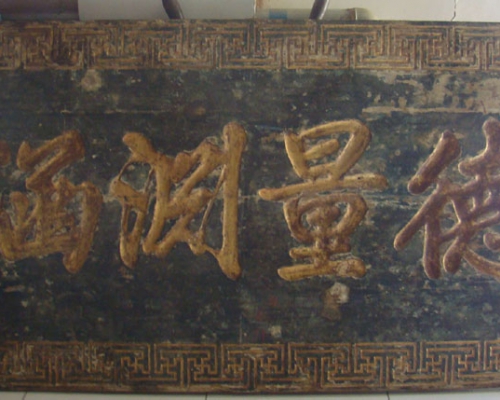 德量淵涵